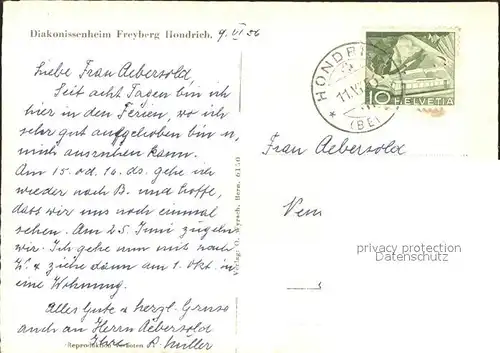 Diakonissenheim Freyberg Hondrich, 9. VI 56
Liebe Frau Aebersold,
Seit acht Tagen bin ich
hier in den Ferien, wo ich
sehr gut aufgehoben bin u,
mich ausruhen kann.
Am 15. od. 16. ds. gehe ich
wieder nach B. und hoffe,
dass wir uns noch einmal
sehen. Am 25. Juni zügeln
wir. Ich gehe nun mit nach
W. & ziehe dann am 1. Okt. in
eine Wohnung.
Alles Gute & herzl. Grüsse
auch an Herrn Aebersold
Ihre A. Müller
Reproduktion verboten
Verlag: O. Wyrsch, Bern. 6150
* HONDRICH
11.VI.
(BE)
10 HELVETIA
Frau Aebersold
Vem
privacy protection
Datenschutz
s